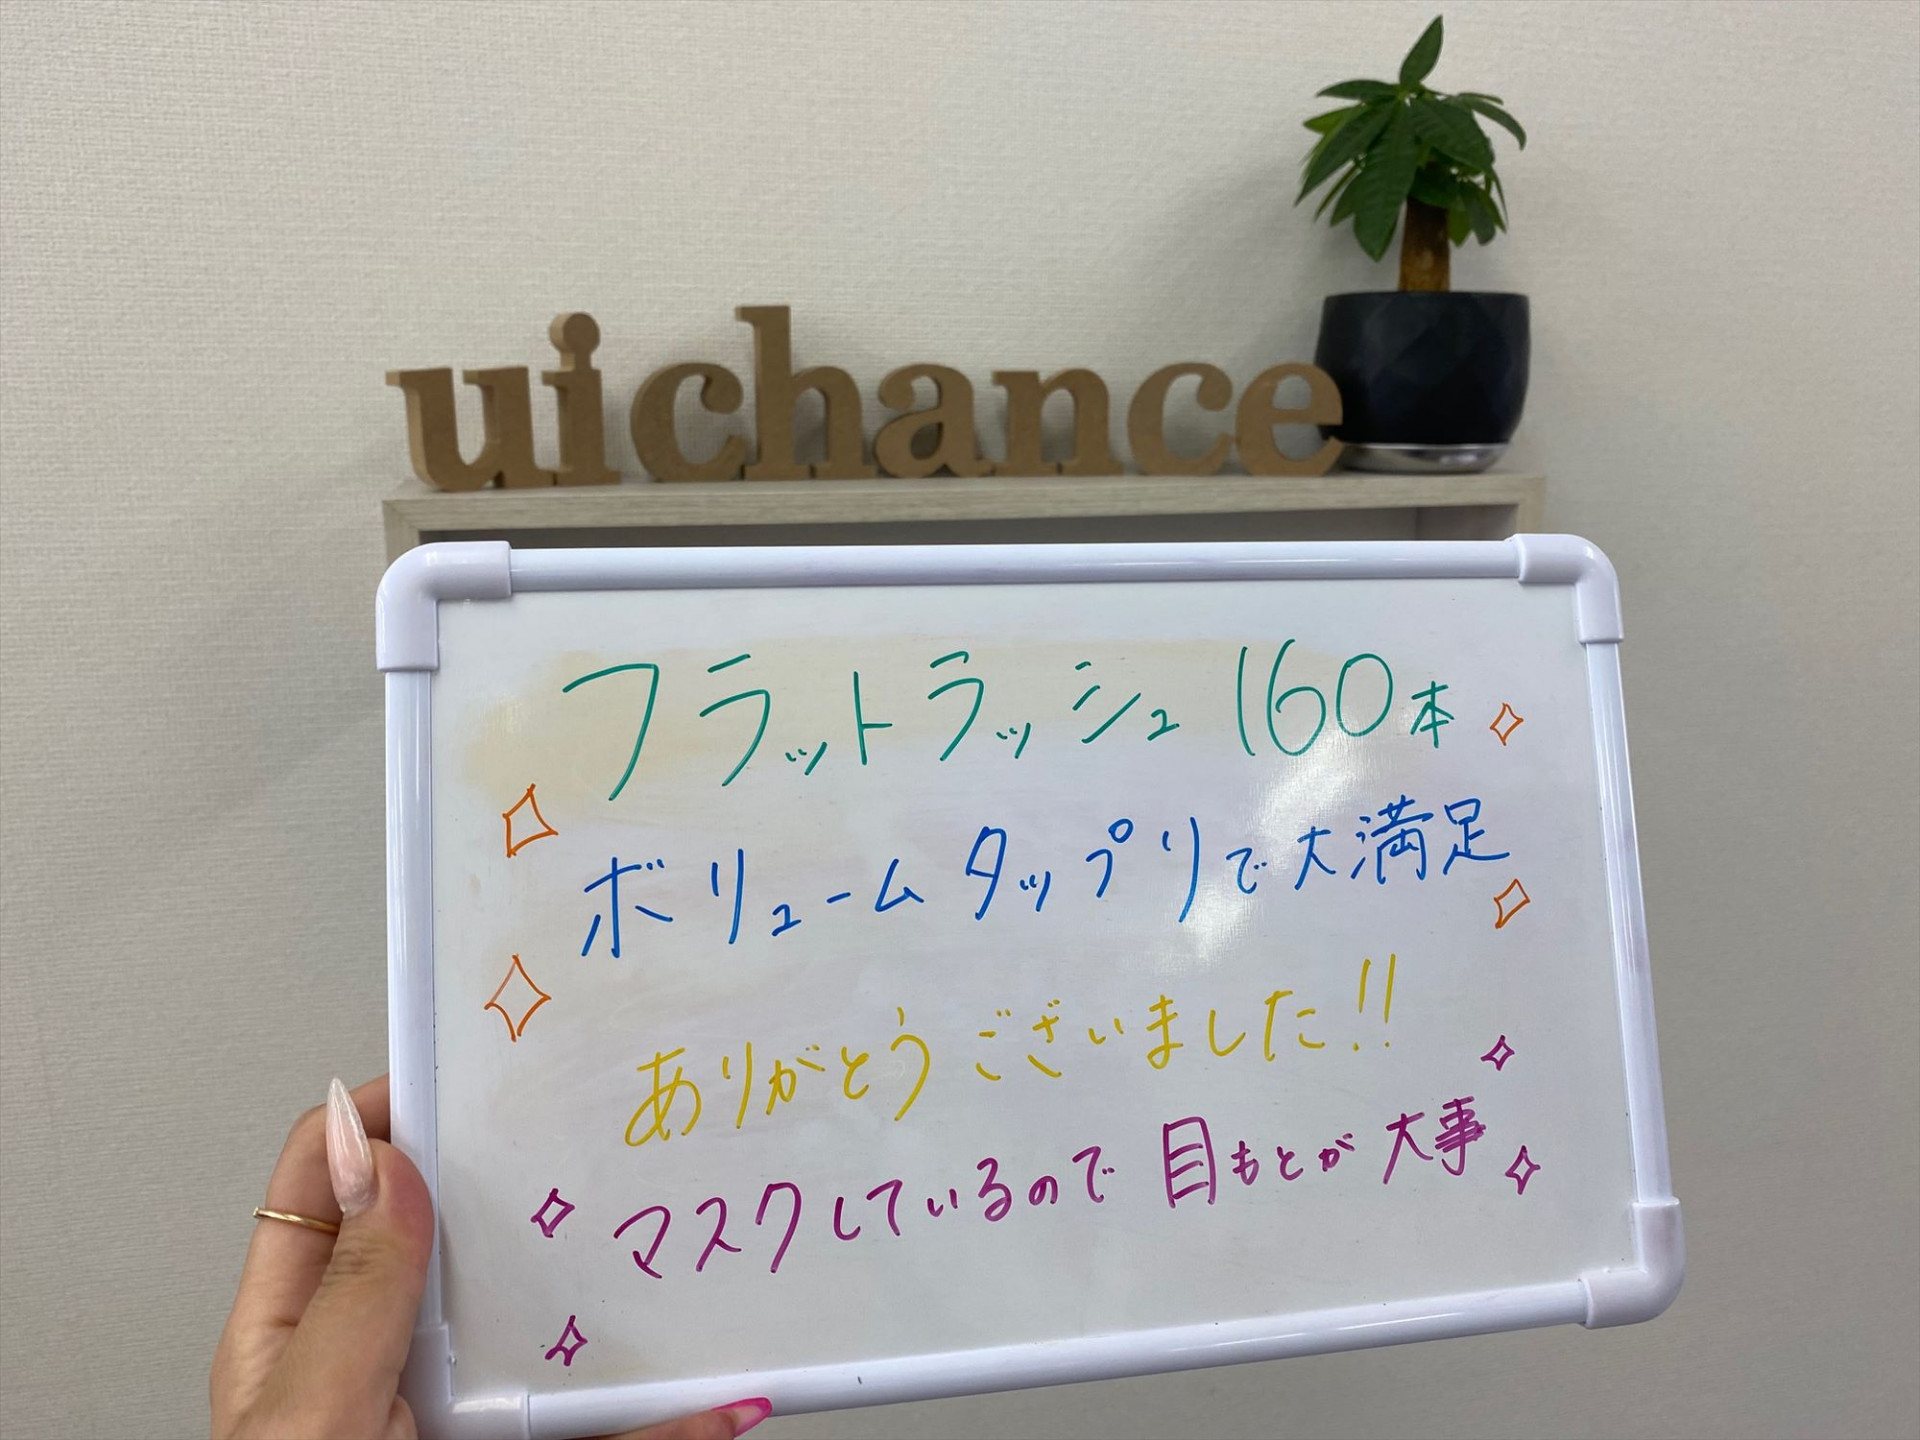 uichance
フラットラッシュ160本
ボリュームタップリで大満足
ありがとうございました!!
マスクしているので目もとが大事